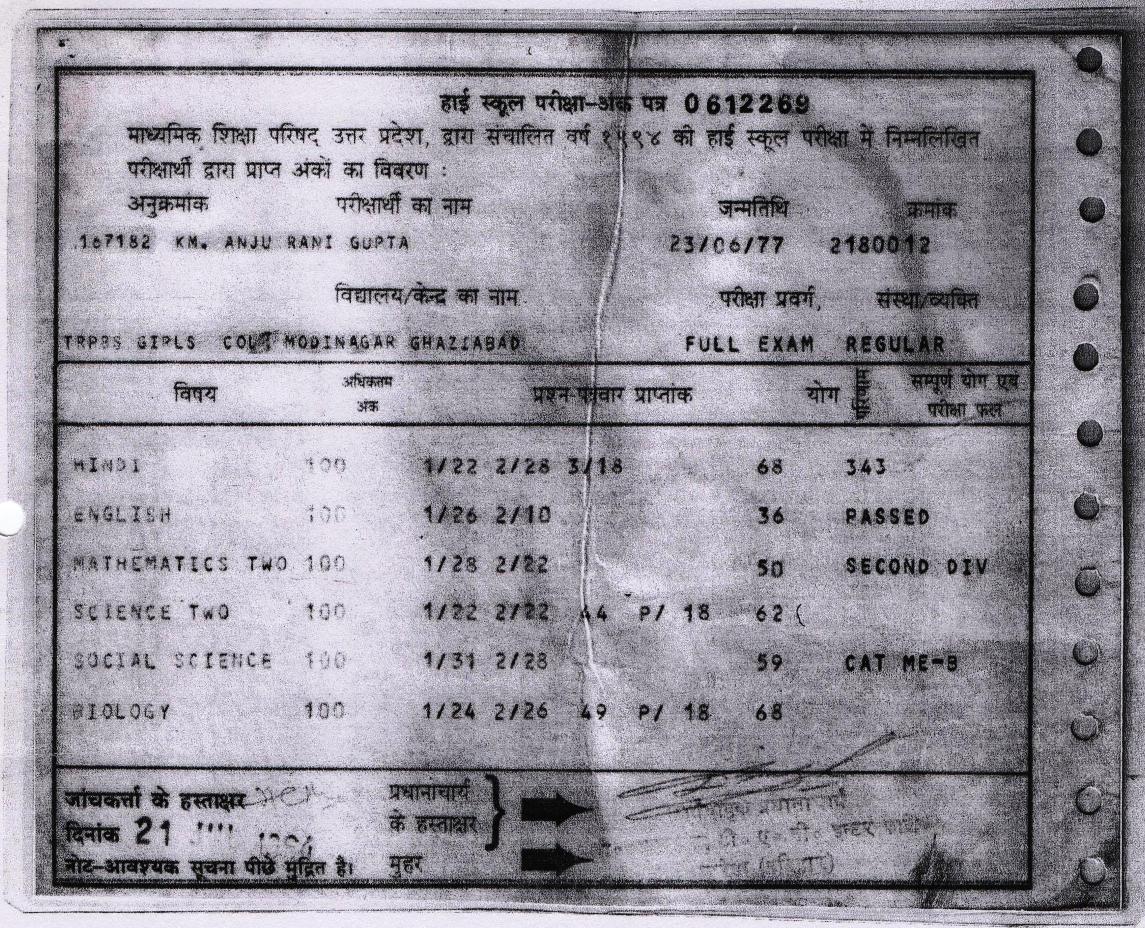 हाई स्कूल परीक्षा-अंक पत्र 0612269
माध्यमिक शिक्षा परिषद् उत्तर प्रदेश, द्वारा संचालित वर्ष १९९४ की हाई स्कूल परीक्षा में निम्नलिखित
परीक्षार्थी द्वारा प्राप्त अंकों का विवरण :
अनुक्रमांक परीक्षार्थी का नाम जन्मतिथि क्रमांक
167182 KM. ANJU RANI GUPTA 23/06/77 2180012
विद्यालय/केन्द्र का नाम परीक्षा प्रवर्ग, संस्था/व्यक्ति
GIRLS MODINAGAR GHAZIABAD FULL EXAM REGULAR
विषय अधिकतम अंक प्रश्न पत्रवार प्राप्तांक योग परिणाम सम्पूर्ण योग एवं परीक्षा फल
HINDI 100 1/22 2/28 3/18 68 343
ENGLISH 100 1/26 2/10 36 PASSED
MATHEMATICS TWO 100 1/28 2/22 50 SECOND DIV
SCIENCE TWO 100 1/22 2/22 44 P/ 18 62
SOCIAL SCIENCE 100 1/31 2/28 59 CAT ME-B
BIOLOGY 100 1/24 2/26 49 P/ 18 68
जांचकर्त्ता के हस्ताक्षर प्रधानाचार्य
दिनांक 21 1994 के हस्ताक्षर
नोट-आवश्यक सूचना पीछे मुद्रित है। मुहर